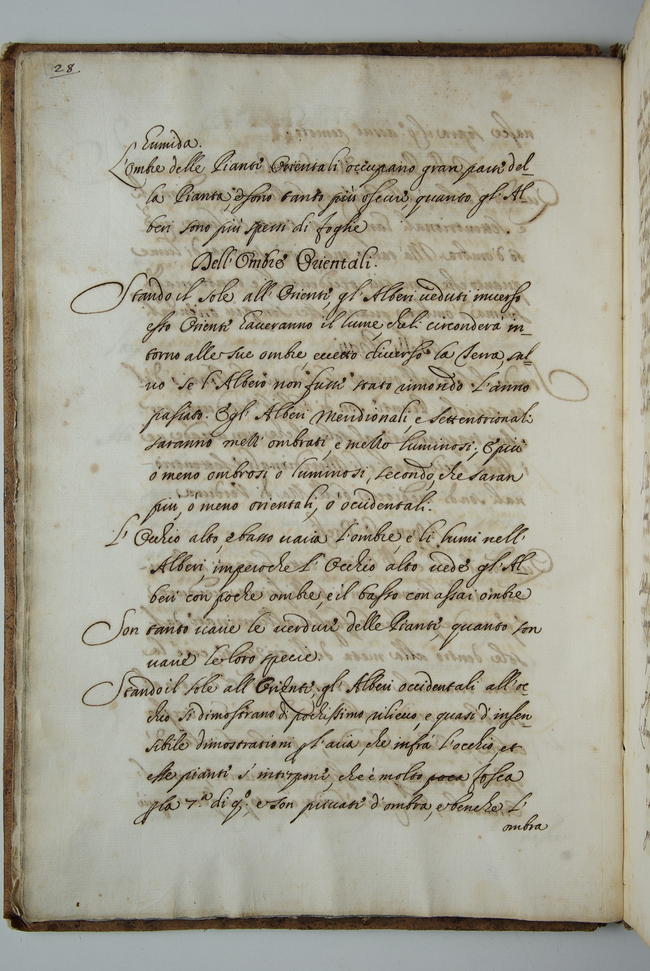 28
Eumida.
L'Ombre delle Piante Orientali occupano gran parte del-
la Pianta, e sono tanto più oscure, quanto gl'Al-
beri sono più spessi di foglie
Dell'Ombre Orientali.
Stando il Sole all'Oriente, gl'Alberi veduti inverso
esso Oriente haveranno il lume, che li circonderà in-
torno alle sue ombre, eccetto di verso la Terra, sal-
vo se l'Albero non fusse stato rimondo l'anno
passato. E gl'Alberi Meridionali e Settentrionali
saranno mezzi ombrati, e mezzo luminosi, e più
o meno ombrosi o luminosi, secondo, che saran
più, o meno orientali, o occidentali.
L'Occhio alto, e basso varia l'ombre, e li lumi nell'
Alberi, imperoche l'Occhio alto vede gl'Al-
beri con poche ombre, e il basso con assai ombre
Son tanto varie le verdure delle Piante, quanto son
varie le loro specie
Stando il Sole all'Oriente, gl'Alberi occidentali all'oc-
chio si dimostrano di pochissimo rilievo, e quasi d'insen-
sibile dimostratione p l'aria, che infrà l'occhio, et
esse piante s'interpone, che è molto poca fosca
p la 7.a di q.o, e son privati d'ombra, e benche l'
ombra